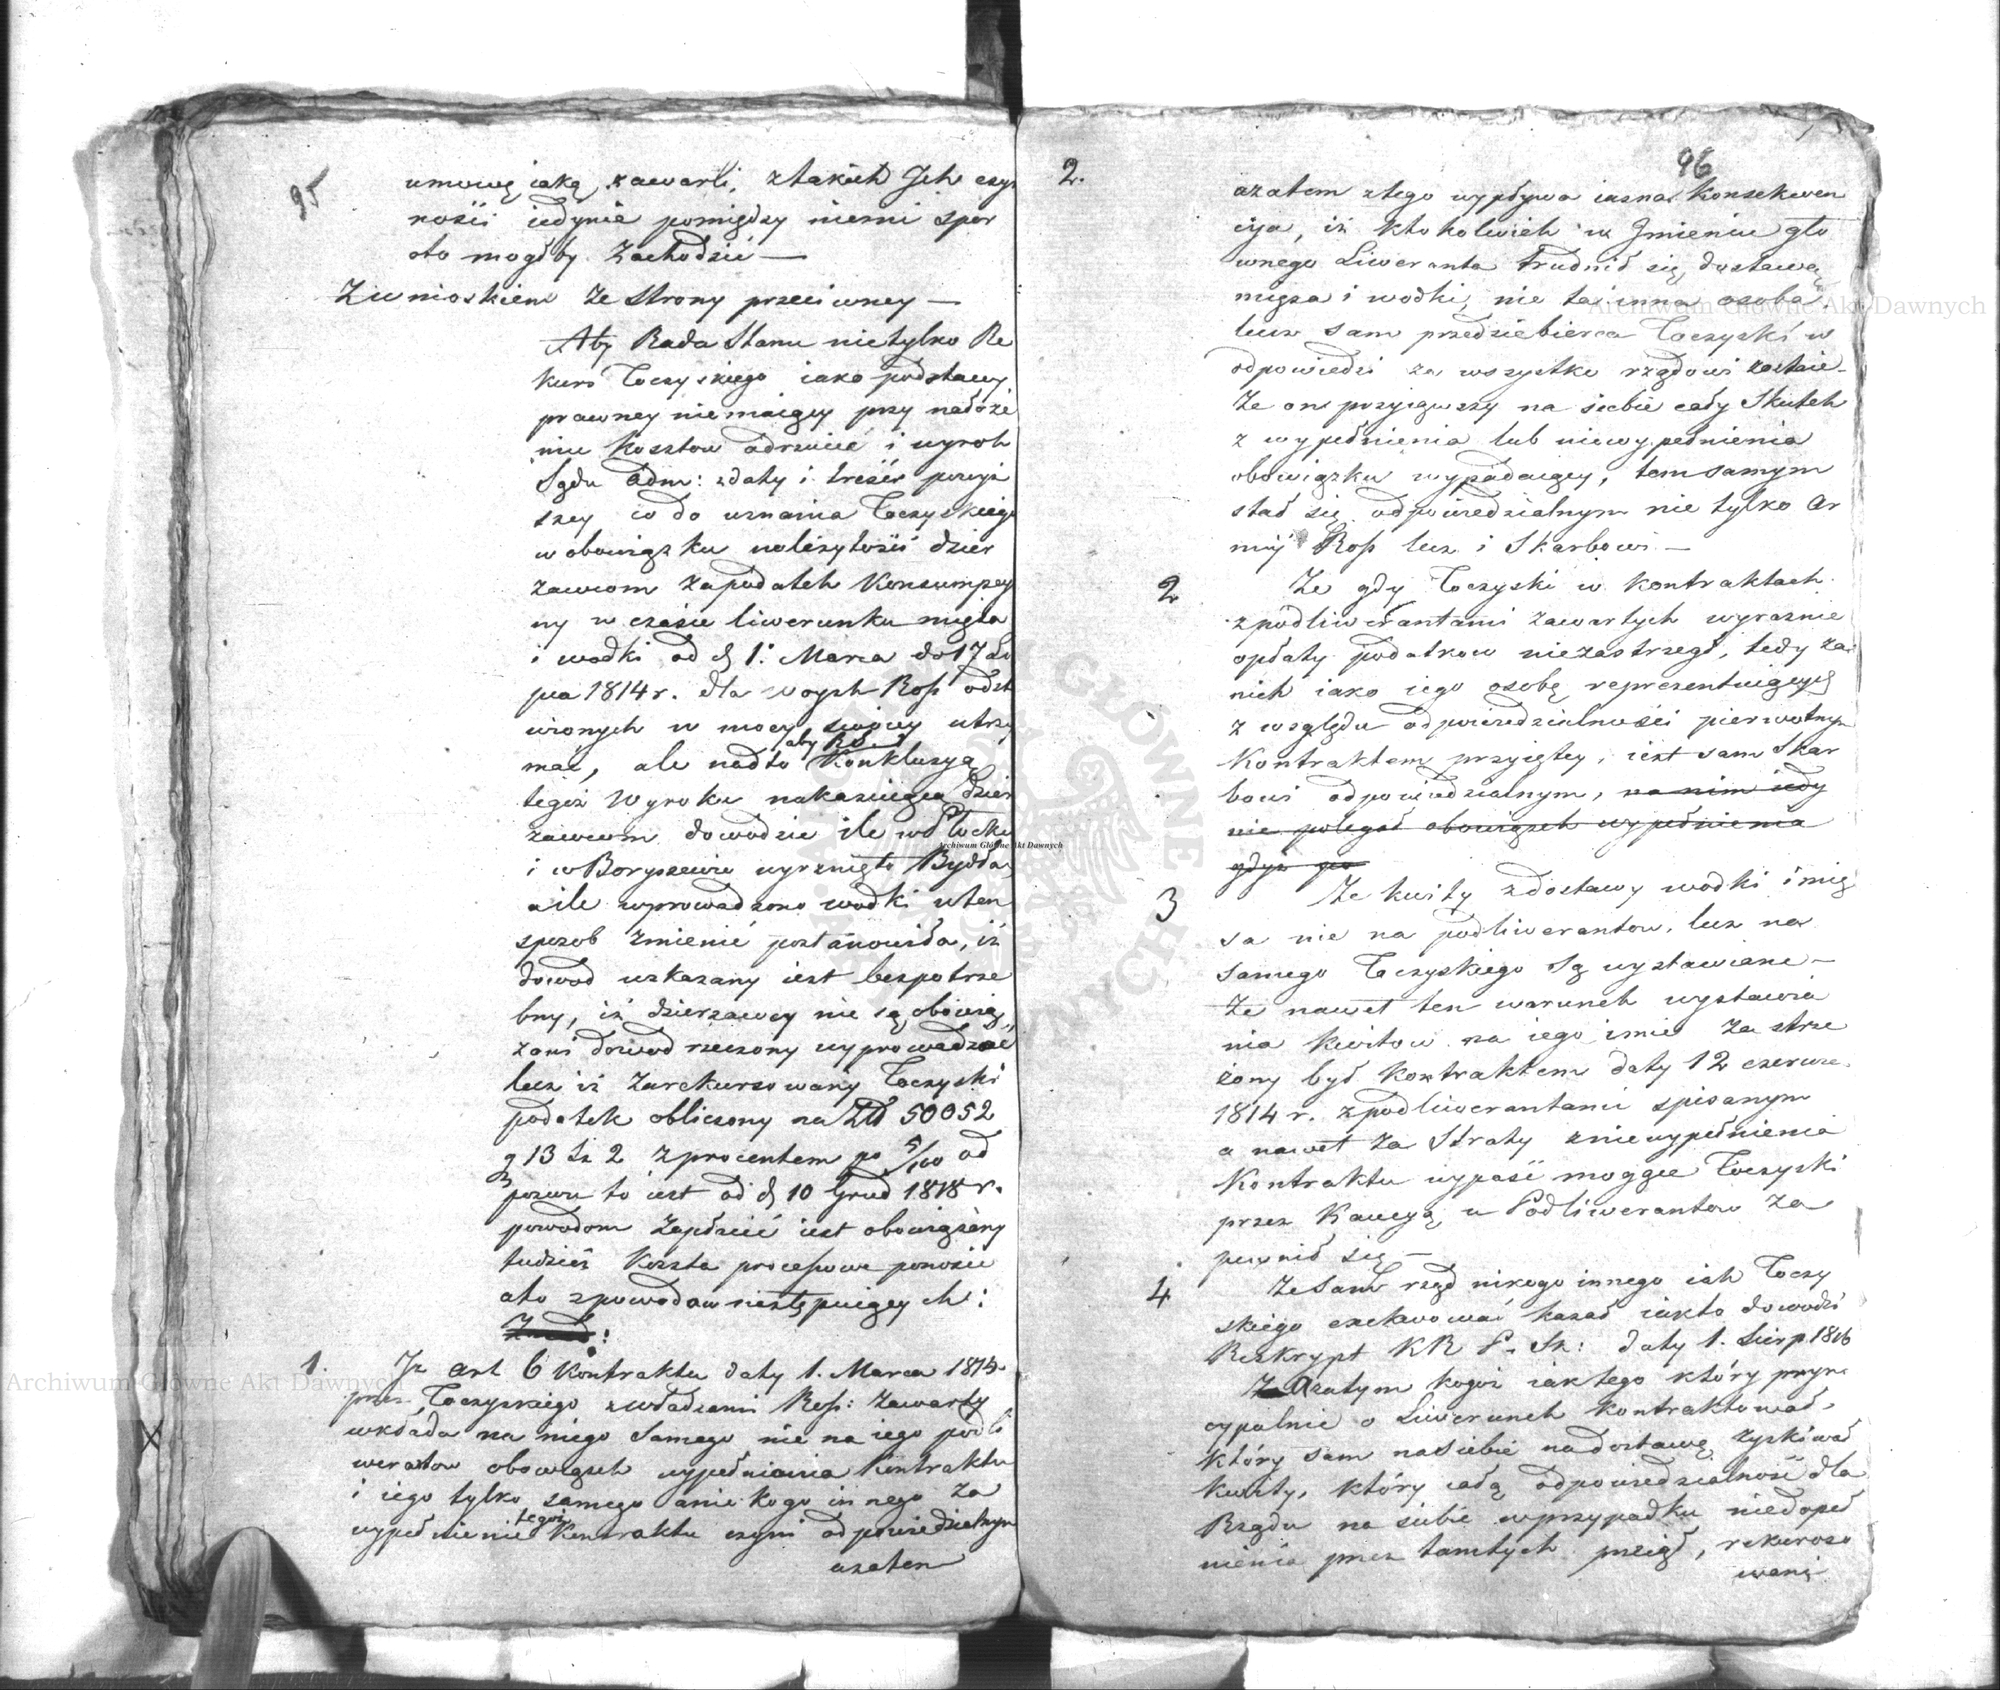 95
umowę iaką zawarli, z takich Ich czyn
ności iedynie pomiędzy niemi spor
oto mogłby zachodzić —
Z wnioskiem ze strony przeciwney —
Aby Rada Stanu nietylko Re
kurs Toczyskiego iako podstawy
prawney niemaiący przy nałoże
niu kosztow odrzucić i wyrok
Sądu Adm: z daty i treści powyż
szey co do uznania Toczyskiego
w obowiązku należytości dzier
zawcom za podatek Konsumpcy
ny w czasie liwerunku mięsa
i wodki od d 1. Marca do 17 Li
pca 1814 r. dla woysk Ross odst
wionych w mocy swoiey utrzy
mać, ale nadto aby Konkluzyą
tegoż Wyroku nakazuiącą dzier
zawcom dowodzić ile w Płocku
i w Boryszewie wyrznięto Bydła
a ile wprowadzono wodki w ten
sposob zmienić postanowiła, iż
dowod wskazany iest bespotrze
bny, iż dzierzawcy nie są obowią
zani dowod rzeczony wyprowadzać
lecz iż zarekursowany Toczyski
podatek obliczony na Zł 50052
g 13 sz 2 z procentem po 5/100 od
pozwu to iest od d 10 Grud 1818 r.
powodom zapłacić iest obowiązany
tudzież koszta processowe ponosić
a to z powodow następuiących:
1. Iz art 6 Kontraktu daty 1. Marca 1814
przez Toczyskiego z władzami Ross: zawarty
wkłada na niego samego nie na iego podli
werantow obowiązek wypełniania Kontraktu
i iego tylko samego a nie kogo innego za
wypełnienie tegoż Kontraktu czyni odpowiedzialnym
azatem
2.
96
azatem z tego wypływa iasna Konsekwen
cya, iż ktokolwiek w Imieniu głо
wnego Liweranta trudnił się dostawą
mięsa i wodki, nie ta inna osoba
lecz sam przedsiebierca Toczyski w
odpowiedzi za wszystko rządowi zostaie —
Ze on przyiąwszy na siebie cały Skutek
z wypełnienia lub niewypełnienia
obowiązku wypadaiący, tem samym
stał się odpowiedzialnym nie tylko Ar
mij Ross lecz i Skarbowi —
2 Ze gdy Toczyski w kontraktach
z podliwerantami zawartych wyraznie
opłaty podatkow niezastrzegł, tedy za
nich iako iego osobę reprezentuiących
z względu odpowiedzialności pierwotnym
Kontraktem przyiętey, iest sam Skar
bowi odpowiedzialnym, na nim iedy
nie polegał obowiązek wypełnienia
gdyż
3 Ze kwity z dostawy wodki i mię
sa nie na podliwerantow, lecz na
samego Toczyskiego są wystawiane —
Ze nawet ten warunek wystawia
nia kwitow na iego imie zastrze
żony był kontraktem daty 12 czerwca
1814 r. z podliwerantami spisanym
a nawet za Straty z niewypełnienia
Kontraktu wypaść mogące Toczyski
przez Kaucyą u Podliwerantow za
pewnił się —
4 Ze sam rząd nikogo innego iak Toczy
skiego exekwować kazał iak to dowodzi
Reskrypt KR P. Sk: daty 1. Sierp 1816
Azatym kogoż iak tego który pryn
cypalnie o Liwerunek kontraktował,
który sam na siebie na dostawę zyskiwał
kwity, który całą odpowiedzialność dla
Rządu na siebie w przypadku niedopeł
nienia przez tamtych przeiął, rekurso
wani